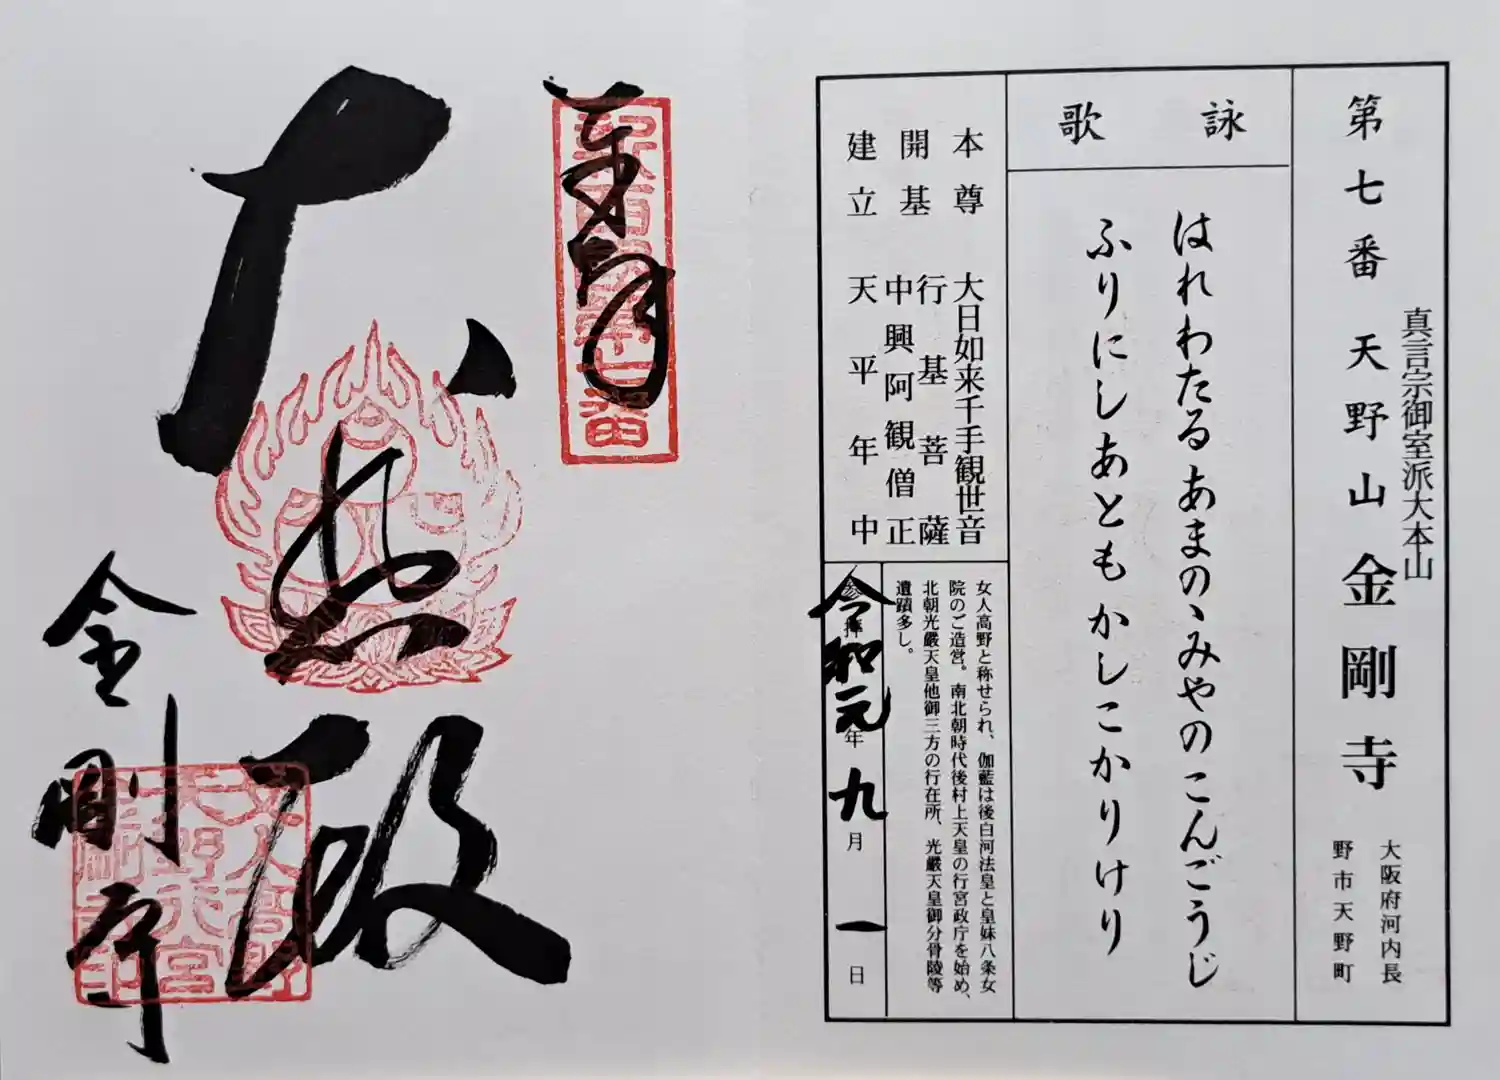 第七番 天野山 金剛寺
真言宗御室派大本山
大阪府河内長
野市天野町
詠歌
はれわたるあまのゝみやのこんごうじ
ふりにしあともかしこかりけり
本尊 大日如来千手観世音
開基 行基菩薩
中興阿観僧正
建立 天平年中
女人高野と称せられ、伽藍は後白河法皇と皇妹八条女
院のご造営。南北朝時代後村上天皇の行宮政庁を始め、
北朝光厳天皇他御三方の行在所、光厳天皇御分骨陵等
遺蹟多し。
参拝 令和元年九月一日
奉拝
大悲殿
金剛寺